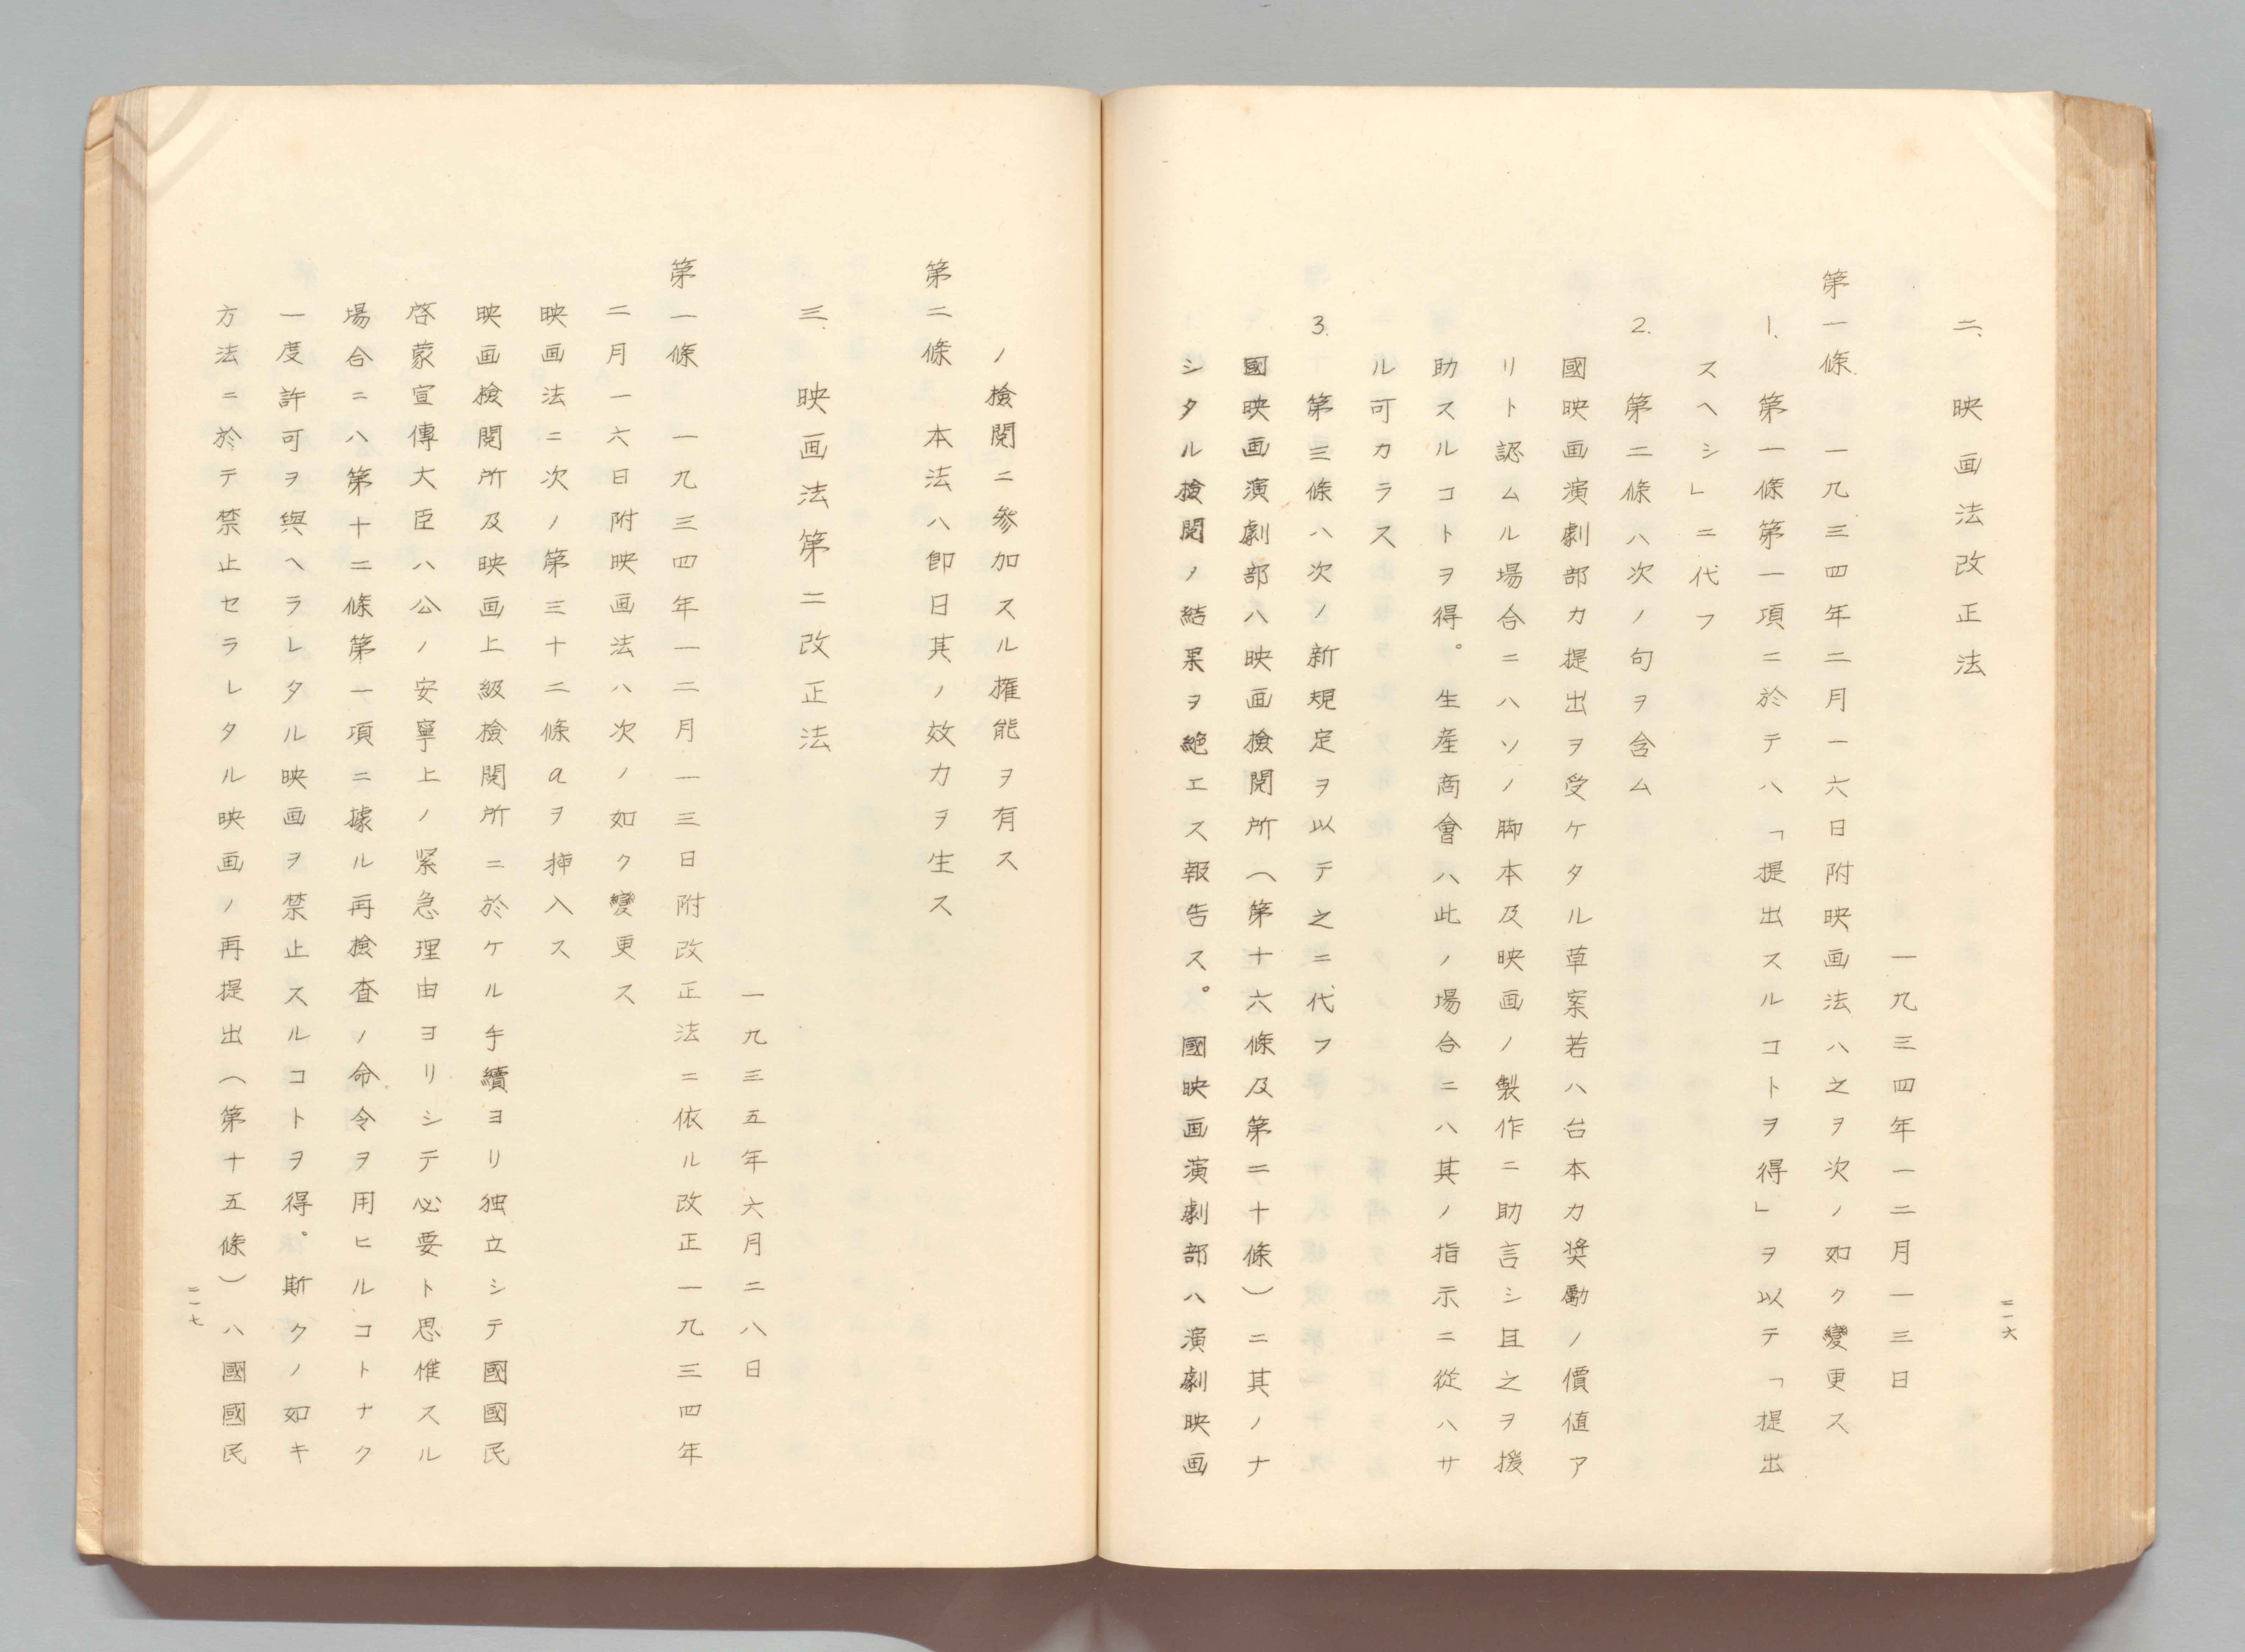 二、映画法改正法
一九三四年一二月一三日
第一條　一九三四年二月一六日附映画法ハ之ヲ次ノ如ク變更ス
1.　第一條第一項ニ於テハ「提出スルコトヲ得」ヲ以テ「提出
スヘシ」ニ代フ
2.　第二條ハ次ノ句ヲ含ム
國映画演劇部カ提出ヲ受ケタル草案若ハ台本カ奨勵ノ價値ア
リト認ムル場合ニハソノ脚本及映画ノ製作ニ助言シ且之ヲ援
助スルコトヲ得。生産商會ハ此ノ場合ニハ其ノ指示ニ從ハサ
ル可カラス
3.　第三條ハ次ノ新規定ヲ以テ之ニ代フ
國映画演劇部ハ映画檢閲所（第十六條及第二十條）ニ其ノナ
シタル檢閲ノ結果ヲ絶エス報告ス。國映画演劇部ハ演劇映画
二一六
ノ檢閲ニ參加スル權能ヲ有ス
第二條　本法ハ卽日其ノ效力ヲ生ス
三、映画法第二改正法
一九三五年六月二八日
第一條　一九三四年一二月一三日附改正法ニ依ル改正一九三四年
二月一六日附映画法ハ次ノ如ク變更ス
映画法ニ次ノ第三十二條aヲ挿入ス
映画檢閲所及映画上級檢閲所ニ於ケル手續ヨリ独立シテ國國民
啓蒙宣傳大臣ハ公ノ安寧上ノ緊急理由ヨリシテ必要ト思惟スル
場合ニハ第十二條第一項ニ據ル再檢査ノ命令ヲ用ヒルコトナク
一度許可ヲ與ヘラレタル映画ヲ禁止スルコトヲ得。斯クノ如キ
方法ニ於テ禁止セラレタル映画ノ再提出（第十五條）ハ國國民
二一七